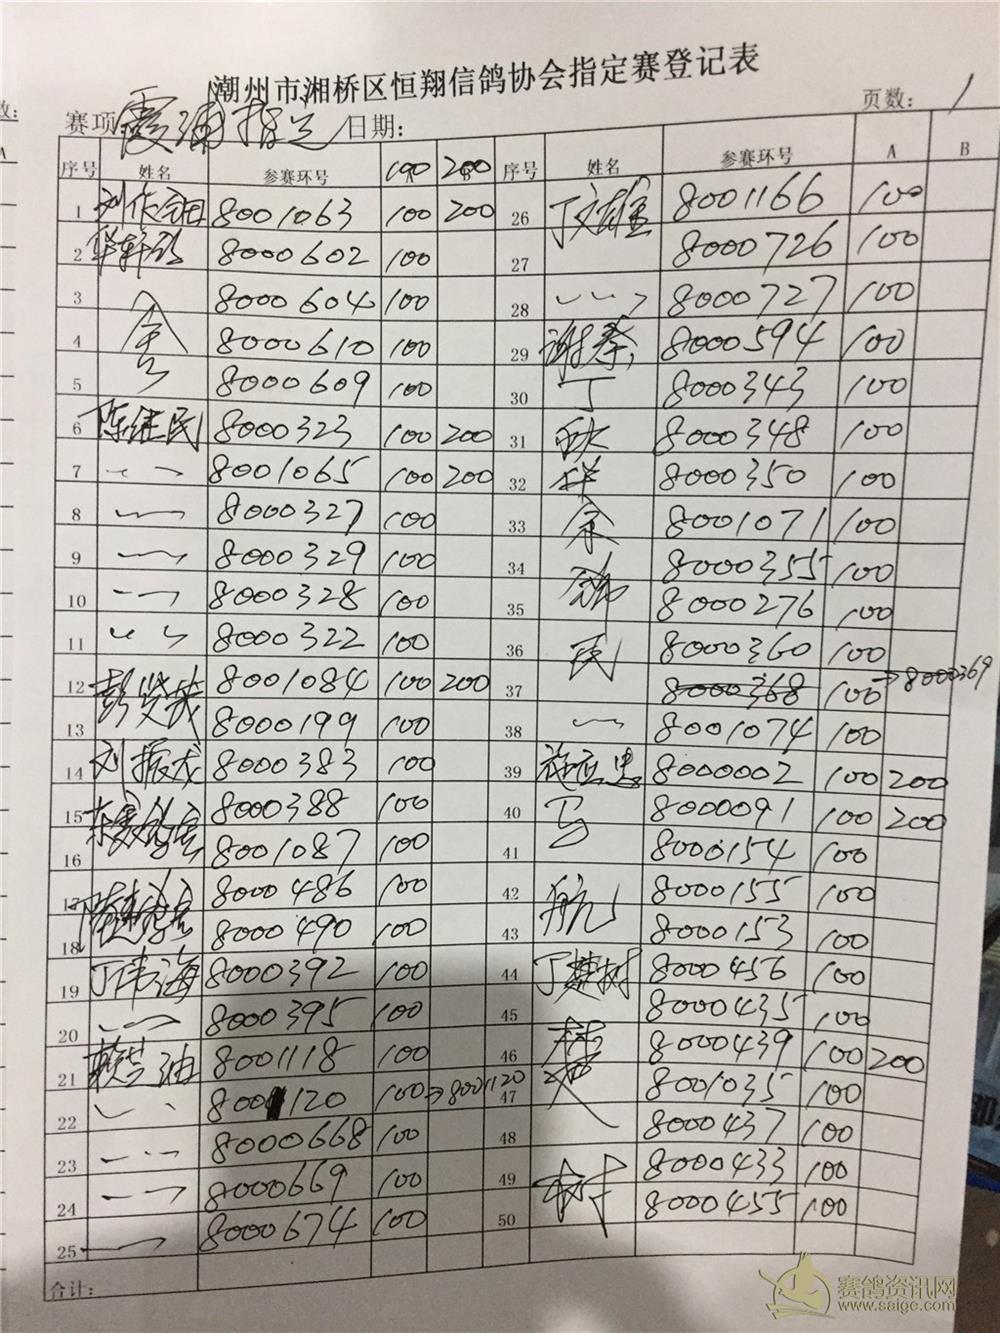 潮州市湘桥区恒翔信鸽协会指定赛登记表
赛项 霞浦指定 日期： 页数： 1
序号 姓名 参赛环号 A 100 B 200 序号 姓名 参赛环号 A B
1 8001063 100 200 26 丁文雄 8001166 100
2 8000602 100 27 8000726 100
3 8000604 100 28 8000727 100
4 8000610 100 29 8000594 100
5 8000609 100 30 丁 8000343 100
6 陈继民 8000323 100 200 31 秋 8000348 100
7 8001065 100 200 32 祥 8000350 100
8 8000327 100 33 余 8001071 100
9 8000329 100 34 8000355 100
10 8000328 100 35 8000276 100
11 8000322 100 36 民 8000360 100
12 8001084 100 200 37 8000368 100 → 8000369
13 8000199 100 38 8001074 100
14 刘振龙 8000383 100 39 8000002 100 200
15 8000388 100 40 8000091 100 200
16 8001087 100 41 8000154 100
17 8000486 100 42 航 8000155 100
18 8000490 100 43 8000153 100
19 丁伟海 8000392 100 44 丁楚树 8000456 100
20 8000395 100 45 8000435 100
21 8001118 100 46 8000439 100 200
22 8001120 100 → 8001120 47 8001035 100
23 8000668 100 48 8000437 100
24 8000669 100 49 树 8000433 100
25 8000674 100 50 8000455 100
合计：
赛鸽资讯网
www.saige.com